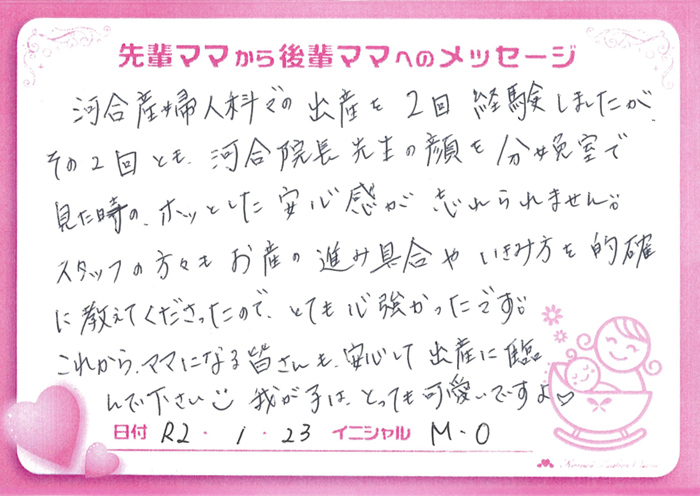 先輩ママから後輩ママへのメッセージ
河合産婦人科での出産を2回経験しましたが、
その2回とも、河合院長先生の顔を分娩室で
見た時の、ホッとした安心感が忘れられません。
スタッフの方々もお産の進み具合やいきみ方を的確
に教えてくださったので、とても心強かったです。
これから、ママになる皆さんも、安心して出産に臨
んで下さい 我が子は、とっても可愛いですよ♡
日付 R2・1・23 イニシャル M・O